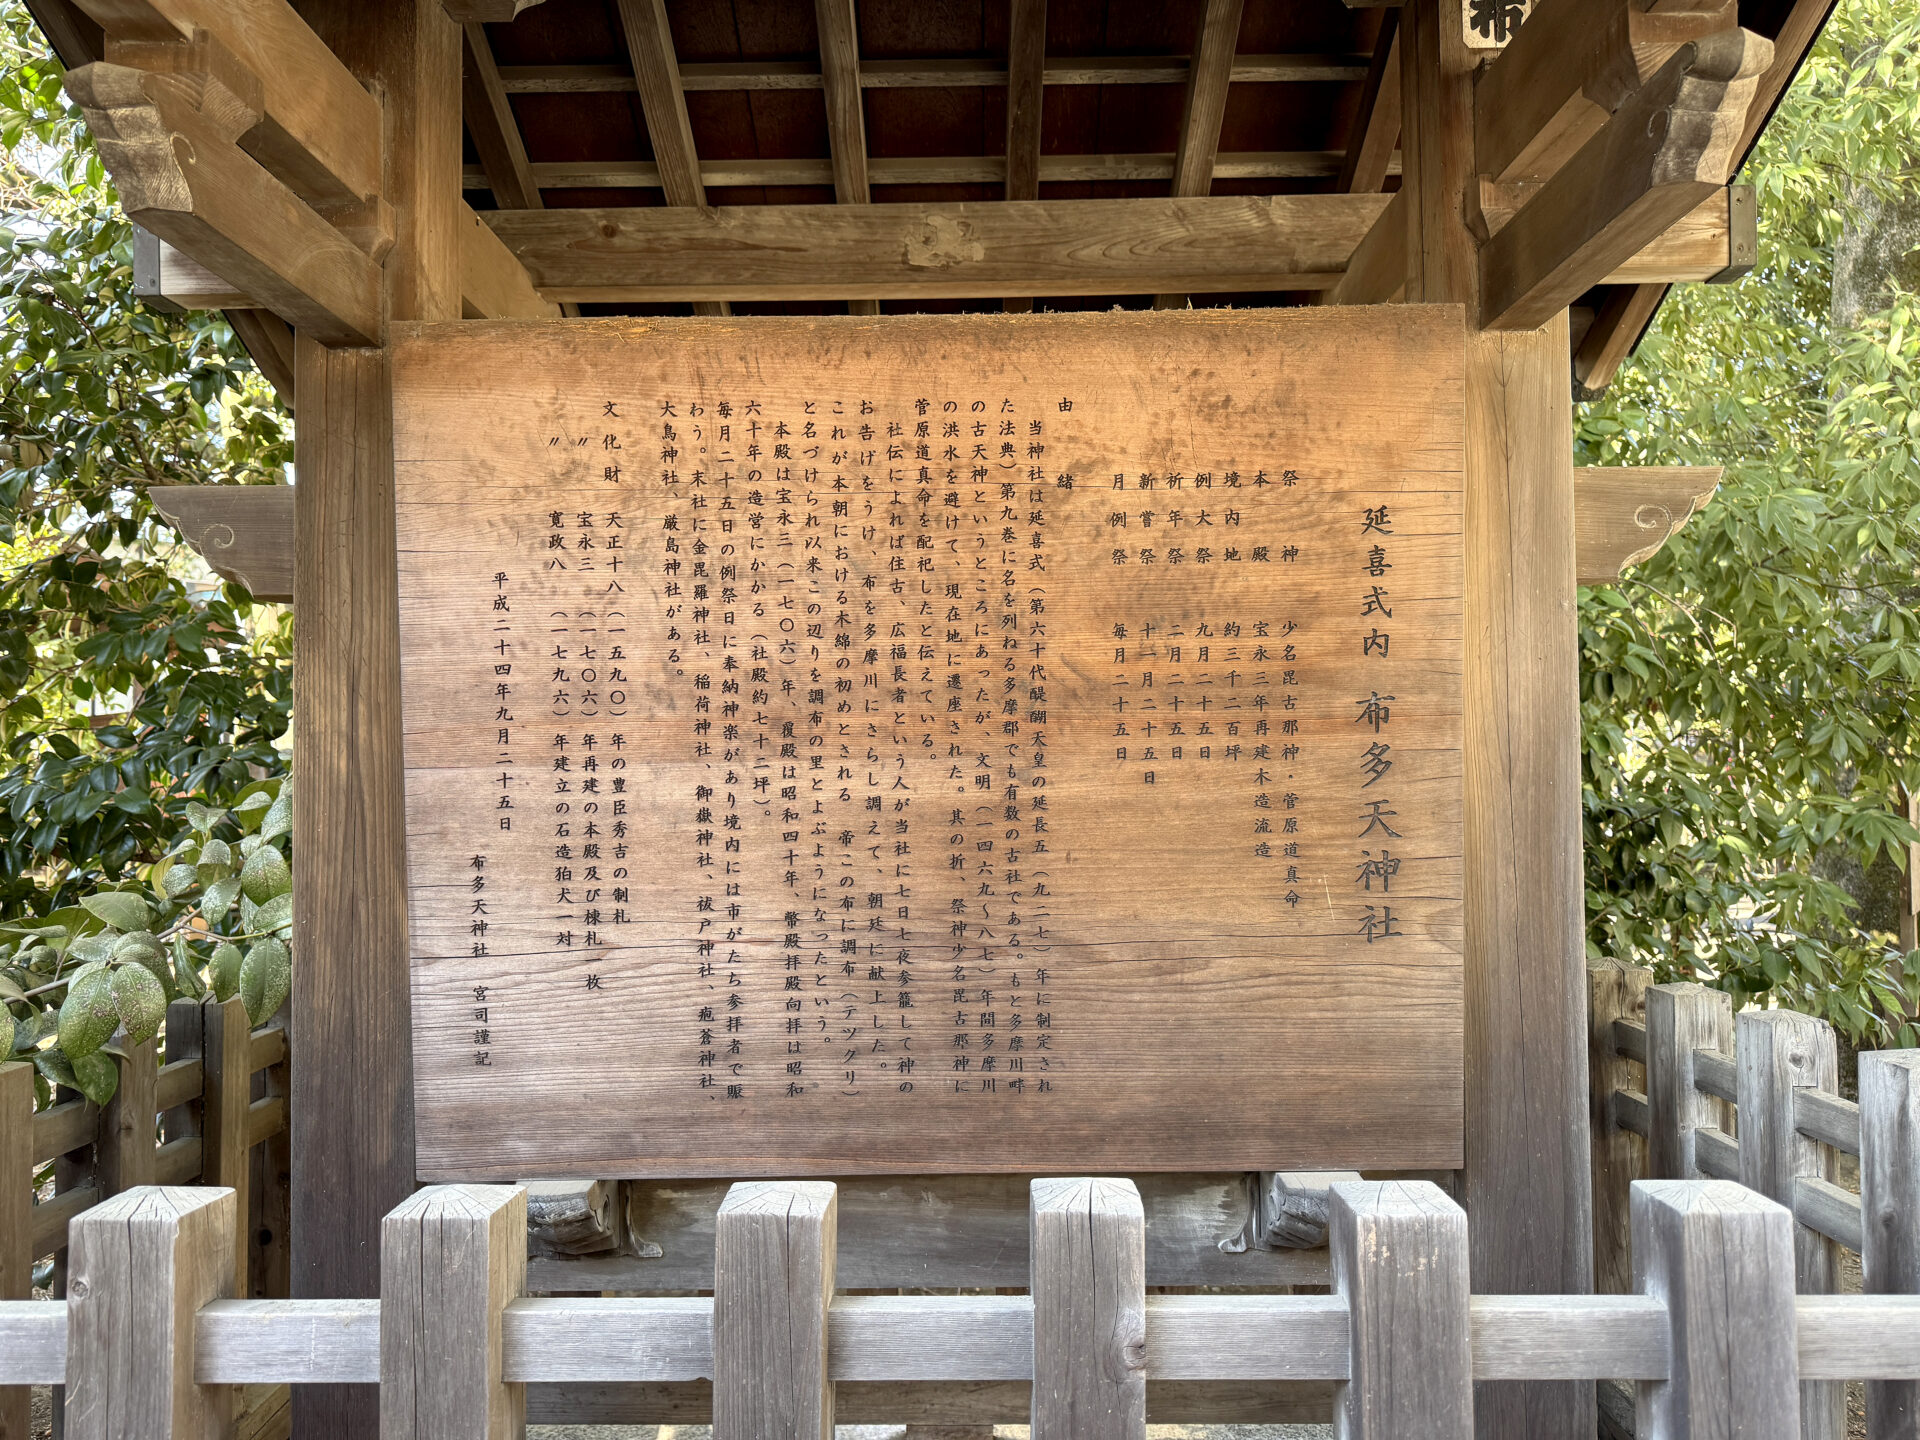 布
延喜式内 布多天神社
祭神 少名毘古那神・菅原道真命
本殿 宝永三年再建木造流造
境内地 約三千二百坪
例大祭 九月二十五日
祈年祭 二月二十五日
新嘗祭 十一月二十五日
月例祭 毎月二十五日
由緒
当神社は延喜式(第六十代醍醐天皇の延長五(九二七)年に制定され
た法典)第九巻に名を列ねる多摩郡でも有数の古社である。もと多摩川畔
の古天神というところにあったが、文明(一四六九〜八七)年間多摩川
の洪水を避けて、現在地に遷座された。其の折、祭神少名毘古那神に
菅原道真命を配祀したと伝えている。
社伝によれば住古、広福長者という人が当社に七日七夜参籠して神の
お告げをうけ、布を多摩川にさらし調えて、朝廷に献上した。
これが本朝における木綿の初めとされる 帝この布に調布(テツクリ)
と名づけられ以来この辺りを調布の里とよぶようになったという。
本殿は宝永三(一七〇六)年、覆殿は昭和四十年、幣殿拝殿向拝は昭和
六十年の造営にかかる(社殿約七十二坪)。
毎月二十五日の例祭日に奉納神楽があり境内には市がたち参拝者で賑
わう。末社に金毘羅神社、稲荷神社、御嶽神社、祓戸神社、疱蒼神社、
大鳥神社、厳島神社がある。
文化財 天正十八(一五九〇)年の豊臣秀吉の制札
〃 宝永三(一七〇六)年再建の本殿及び棟札一枚
〃 寛政八(一七九六)年建立の石造狛犬一対
平成二十四年九月二十五日
布多天神社 宮司謹記